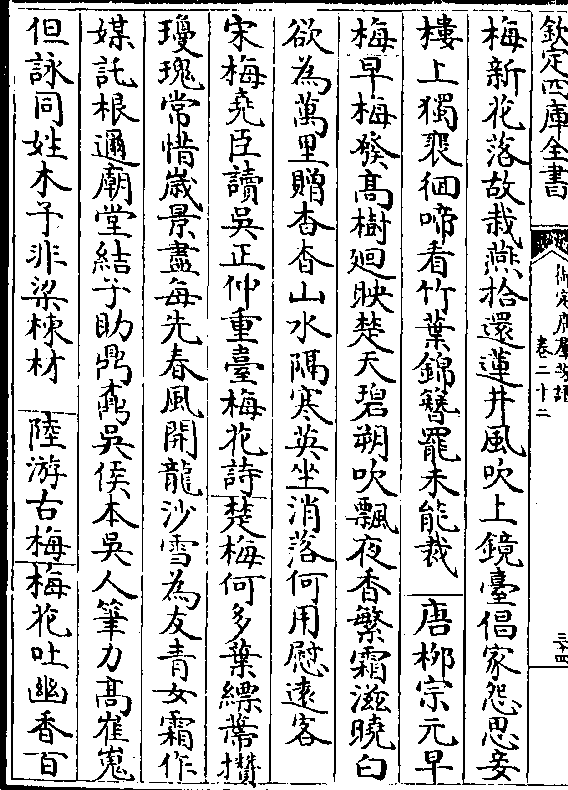 欽定四庫全書
御定廣羣芳譜
卷二十二
三十四
梅新花落故栽燕拾還蓮井風吹上鏡臺倡家怨思妾
樓上獨裵徊啼看竹葉錦簪罷未能裁　唐柳宗元早
梅早梅發髙樹廻映楚天碧朔吹飄夜香繁霜滋曉白
欲為萬里贈杳杳山水隔寒英坐消落何用慰遠客
宋梅堯臣讀吳正仲重臺梅花詩楚梅何多葉縹蔕攅
瓊瑰常惜嵗景盡每先春風開龍沙雪為友青女霜作
媒託根邇廟堂結子助鼎鼐吳侯本吳人筆力髙崔嵬
但詠同姓木予非梁棟材　陸游古梅梅花吐幽香百